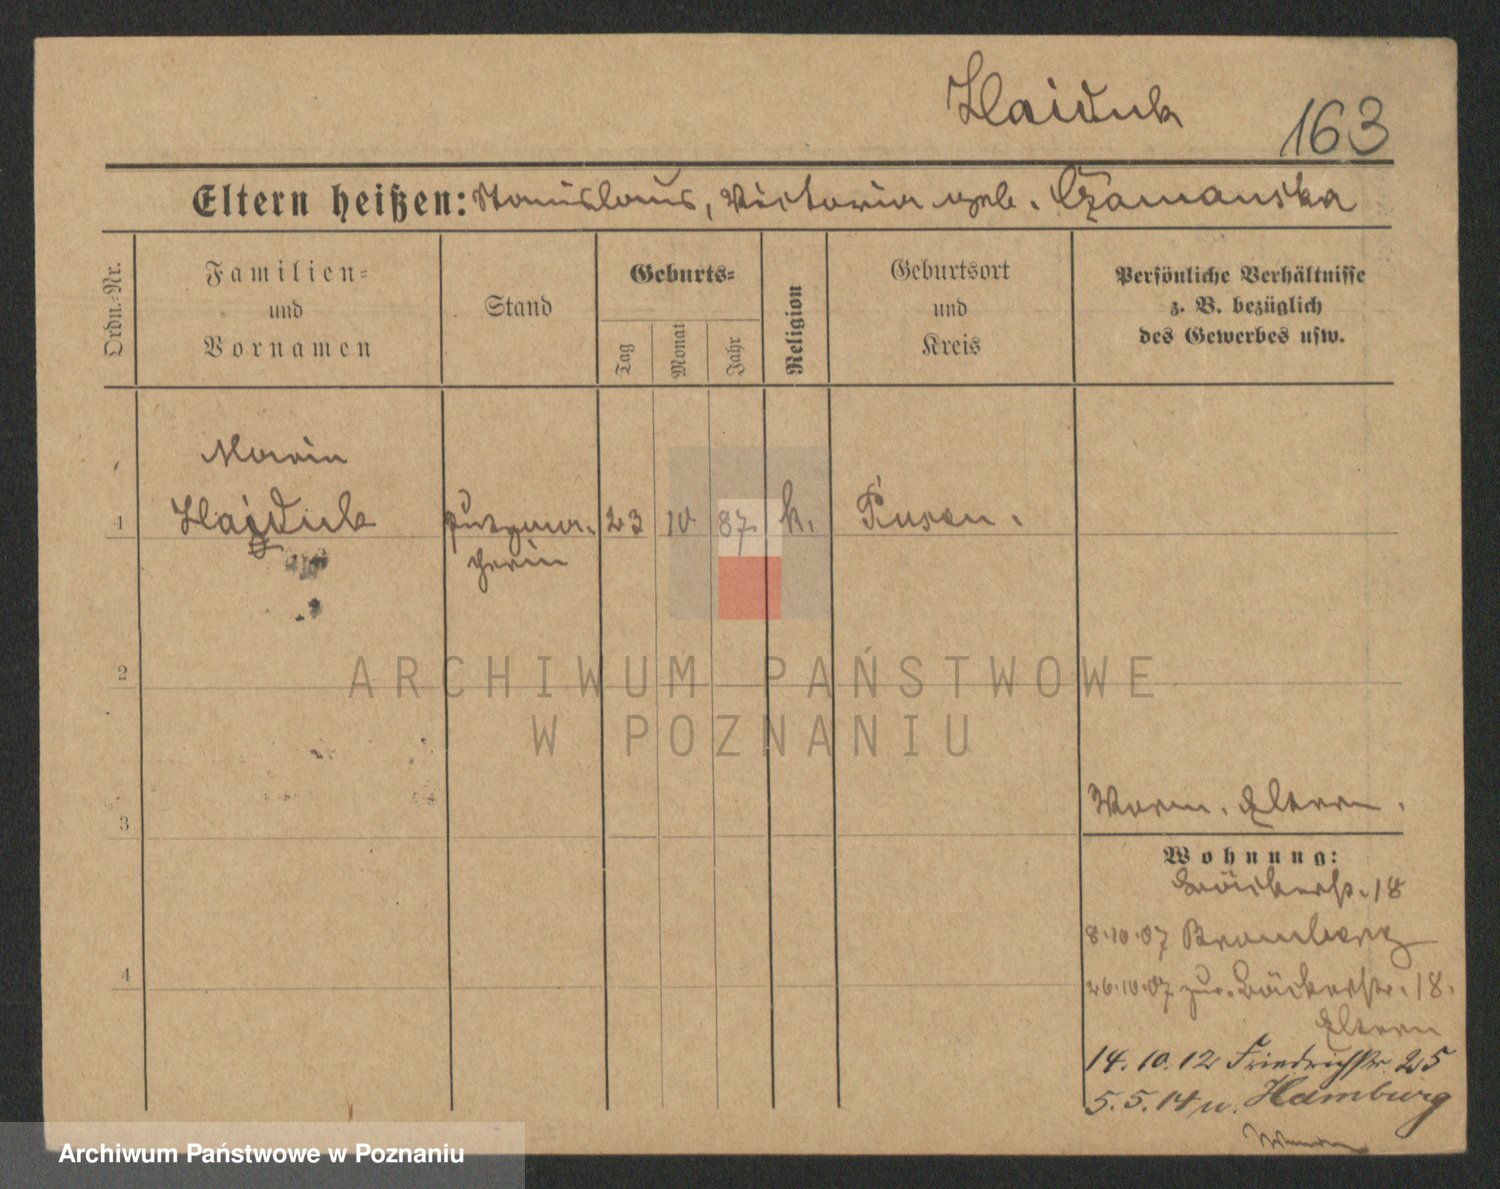 Haiduk
163
Eltern heißen: Stanislaus, Victoria geb. Czamanska
Ordn.=Nr.
Familien=
und
Vornamen
Stand
Geburts=
Tag
Monat
Jahr
Religion
Geburtsort
und
Kreis
Persönliche Verhältnisse
z. B. bezüglich
des Gewerbes usw.
Maria
1 Hajduk Putzma- 23 10 87. k. Posen.
cherin
2
ARCHIWUM PAŃSTWOWE
W POZNANIU
3
Eltern.
Wohnung:
Bäckerst. 18
8.10.07 Bromberg
4
26.10.07 zur. Bäckerstr. 18.
Eltern
14.10.12 Friedrichstr. 25
5.5.14 n. Hamburg
Archiwum Państwowe w Poznaniu